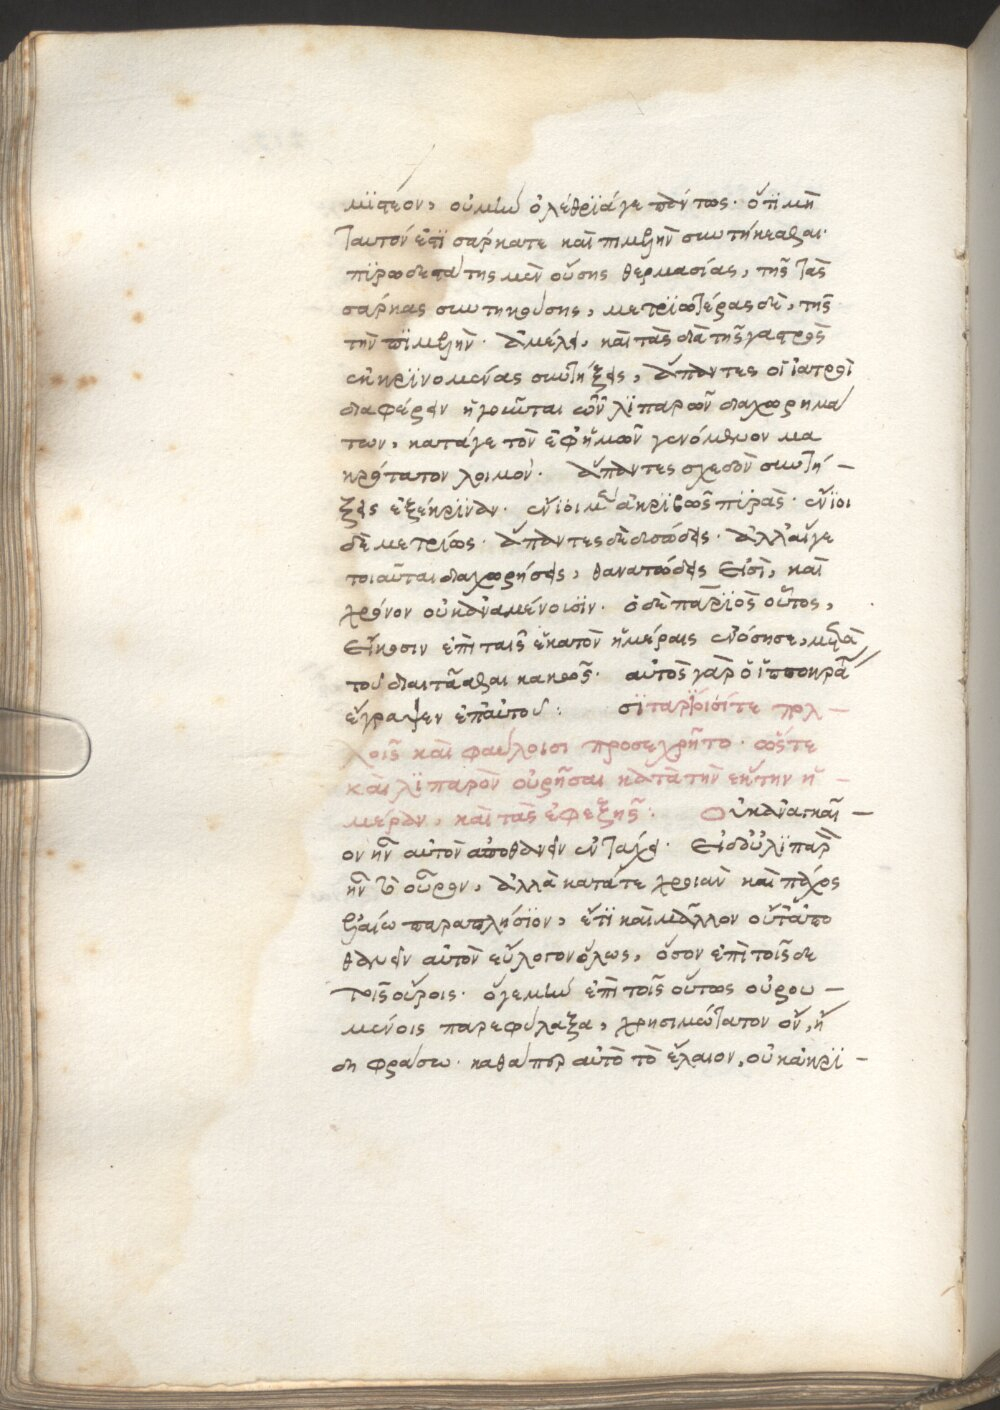 μϊστέον, οὐ μὴν ὀλέθρϊά γε πάντως· ὅτϊ μὴ
ταυτόν ἐστϊ σάρκά τε καὶ πιμελὴν συντήκεσθαι·
πϋρωδεστάτης μὲν οὔσης θερμασίας, τῆς τὰς
σάρκας συντηκούσης, μετρϊωτέρας δὲ, τῆς
τὴν πϊμελὴν· ἀμέλει, καὶ τὰς διὰ τῆς γαστρὸς
ἐκκρϊνομένας συντήξεις, ἅπαντες οἱ ἰατροὶ
διαφέρειν ἡγοῦνται τῶν λϊπαρῶν διαχωρημά
των, κατά γε τὸν ἐφ' ἡμῶν γενόμενον μα
κρότατον λοιμόν· ἅπαντες σχεδὸν συντή-
ξεις ἐξέκρϊναν· ἔνϊοι μὲν ἀκρϊβῶς πϋρὰς· ἔνϊοι
δὲ μετρίως· ἅπαντες δὲ δυσώδεις· ἀλλ' αἵ γε
τοιαῦται διαχωρήσεις, θανατώδεις εἰσὶ, καὶ
χρόνον οὐκ ἀναμένουσϊν· ὁ δὲ πάρϊος οὗτος,
εἴκοσιν ἐπὶ ταῖς ἑκατὸν ἡμέραις ἐνόσησε, μετὰ
τοῦ διαιτᾶσθαι κακῶς· αὐτὸς γὰρ ὁ ἱπποκρά
έγραψεν ἐπ' αὐτοῦ: σϊταρϊοισί τε πολ-
λοῖς καὶ φαύλοισι προσεχρῆτο· ὥστε
καὶ λϊπαρὸν οὐρῆσαι κατὰ τὴν ἕκτην ἡ-
μέραν, καὶ τὰς ἐφεξῆς: Οὐκ ἀναγκαῖ-
ον ἦν αὐτὸν ἀποθανεῖν ἐν τάχει· εἰ δ' οὐ λϊπαρ
ἦν τὸ οὖρον, ἀλλὰ κατά τε χροιὰν καὶ πάχος
ἐλαίω παραπλήσϊον, ἔτϊ καὶ μᾶλλον οὔτ' ἀπο
θανεῖν αὐτὸν εὔλογον ὅλως, ὅσον ἐπὶ τοῖσδε
τοῖς οὔροις· ὅ γε μὴν ἐπὶ τοῖς οὕτως οὐρου-
μένοις παρεφύλαξα, χρησιμώτατον ὂν, ἤ
δη φράσω· καθάπερ αὐτὸ τὸ ἔλαιον, οὐκ ἀκρϊ-